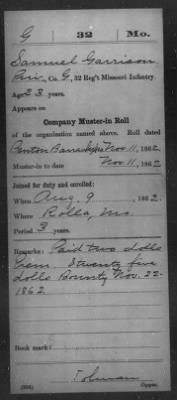 G | 32 | Mo.
Samuel Garrison
Priv., Co. G, 32 Reg't Missouri Infantry.
Age 23 years.
Appears on
Company Muster-in Roll
of the organization named above. Roll dated
Benton Barracks, Mo Nov 11, 1862.
Muster-in to date Nov 11, 1862
Joined for duty and enrolled:
When Aug. 9, 1862.
Where Rolla, Mo.
Period 3 years.
Remarks: Paid two dolls
Prem. & twenty five
dolls Bounty Nov. 22-
1862
Book mark:
Tolman
Copyist.